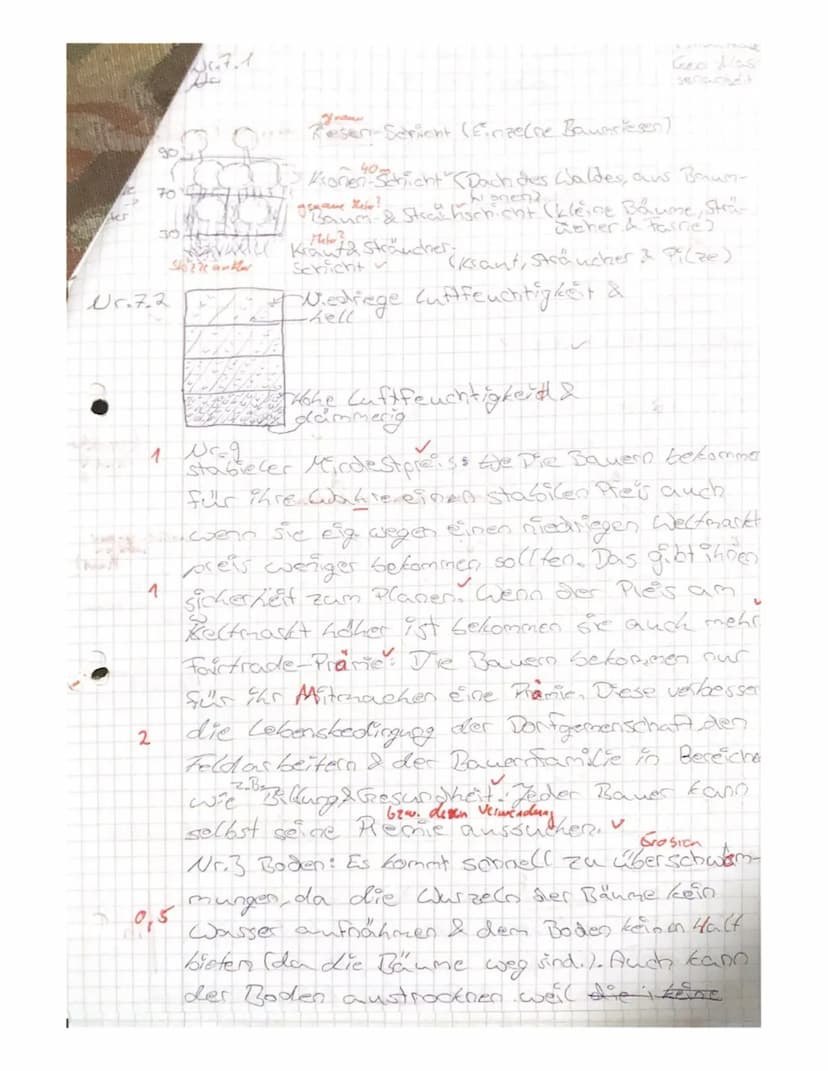 Nr. 7.1
genaue
Riesen-Schicht (Einzelne Baumriesen)
90
40m
Kronen-Schicht (Dach des Waldes, aus Baum-
kronen)
70
genaue Meter?
Baum- & Strauchschicht (kleine Bäume, Sträu-
cher & Farne)
30
Meter?
Kraut & Sträucher-
Schicht ✓ (Kraut, Sträucher & Pilze)
Nr. 7.2
Niedriege Luftfeuchtigkeit &
hell
✓
Hohe Luftfeuchtigkeid &
dämmerig
Nr. 9
1
stabieler Mindestpreis: Die Bauern bekomme
für ihre Wahre einen stabilen Preis auch
wenn sie eig. wegen einen niedriegen Weltmarkt
preis weniger bekommen sollten. Das gibt ihnen
1
sicherheit zum Planen. ✓ Wenn der Preis am
Weltmarkt höher ist bekommen sie auch mehr ✓
Fairtrade-Prämie: ✓ Die Bauern bekommen nur
für ihr Mitmachen eine Prämie. Diese verbesser
2
die Lebensbedingung der Dorfgemenschaft, den
Feldarbeitern & der Bauernfamilie in Bereiche
wie z.B. Bildung & Gesundheit. ✓ Jeder Bauer kann
bzw. deren Verwendung
selbst seine Premie aussuchen. ✓
Erosion
Nr. 3 Boden: Es kommt schnell zu überschwem-
mungen, da die Wurzeln der Bäume kein
0,5
Wasser aufnähmen & dem Boden keinen Halt
bieten (da die Bäume weg sind.). Auch kann
der Boden austrocknen weil die keine